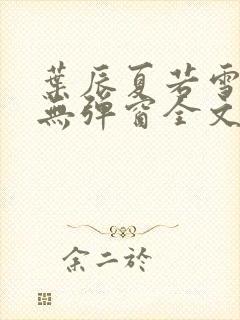 葉辰夏若雪
無彈窗全文
余二於